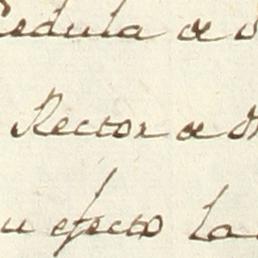 Cedula de
Rector de
su efecto la